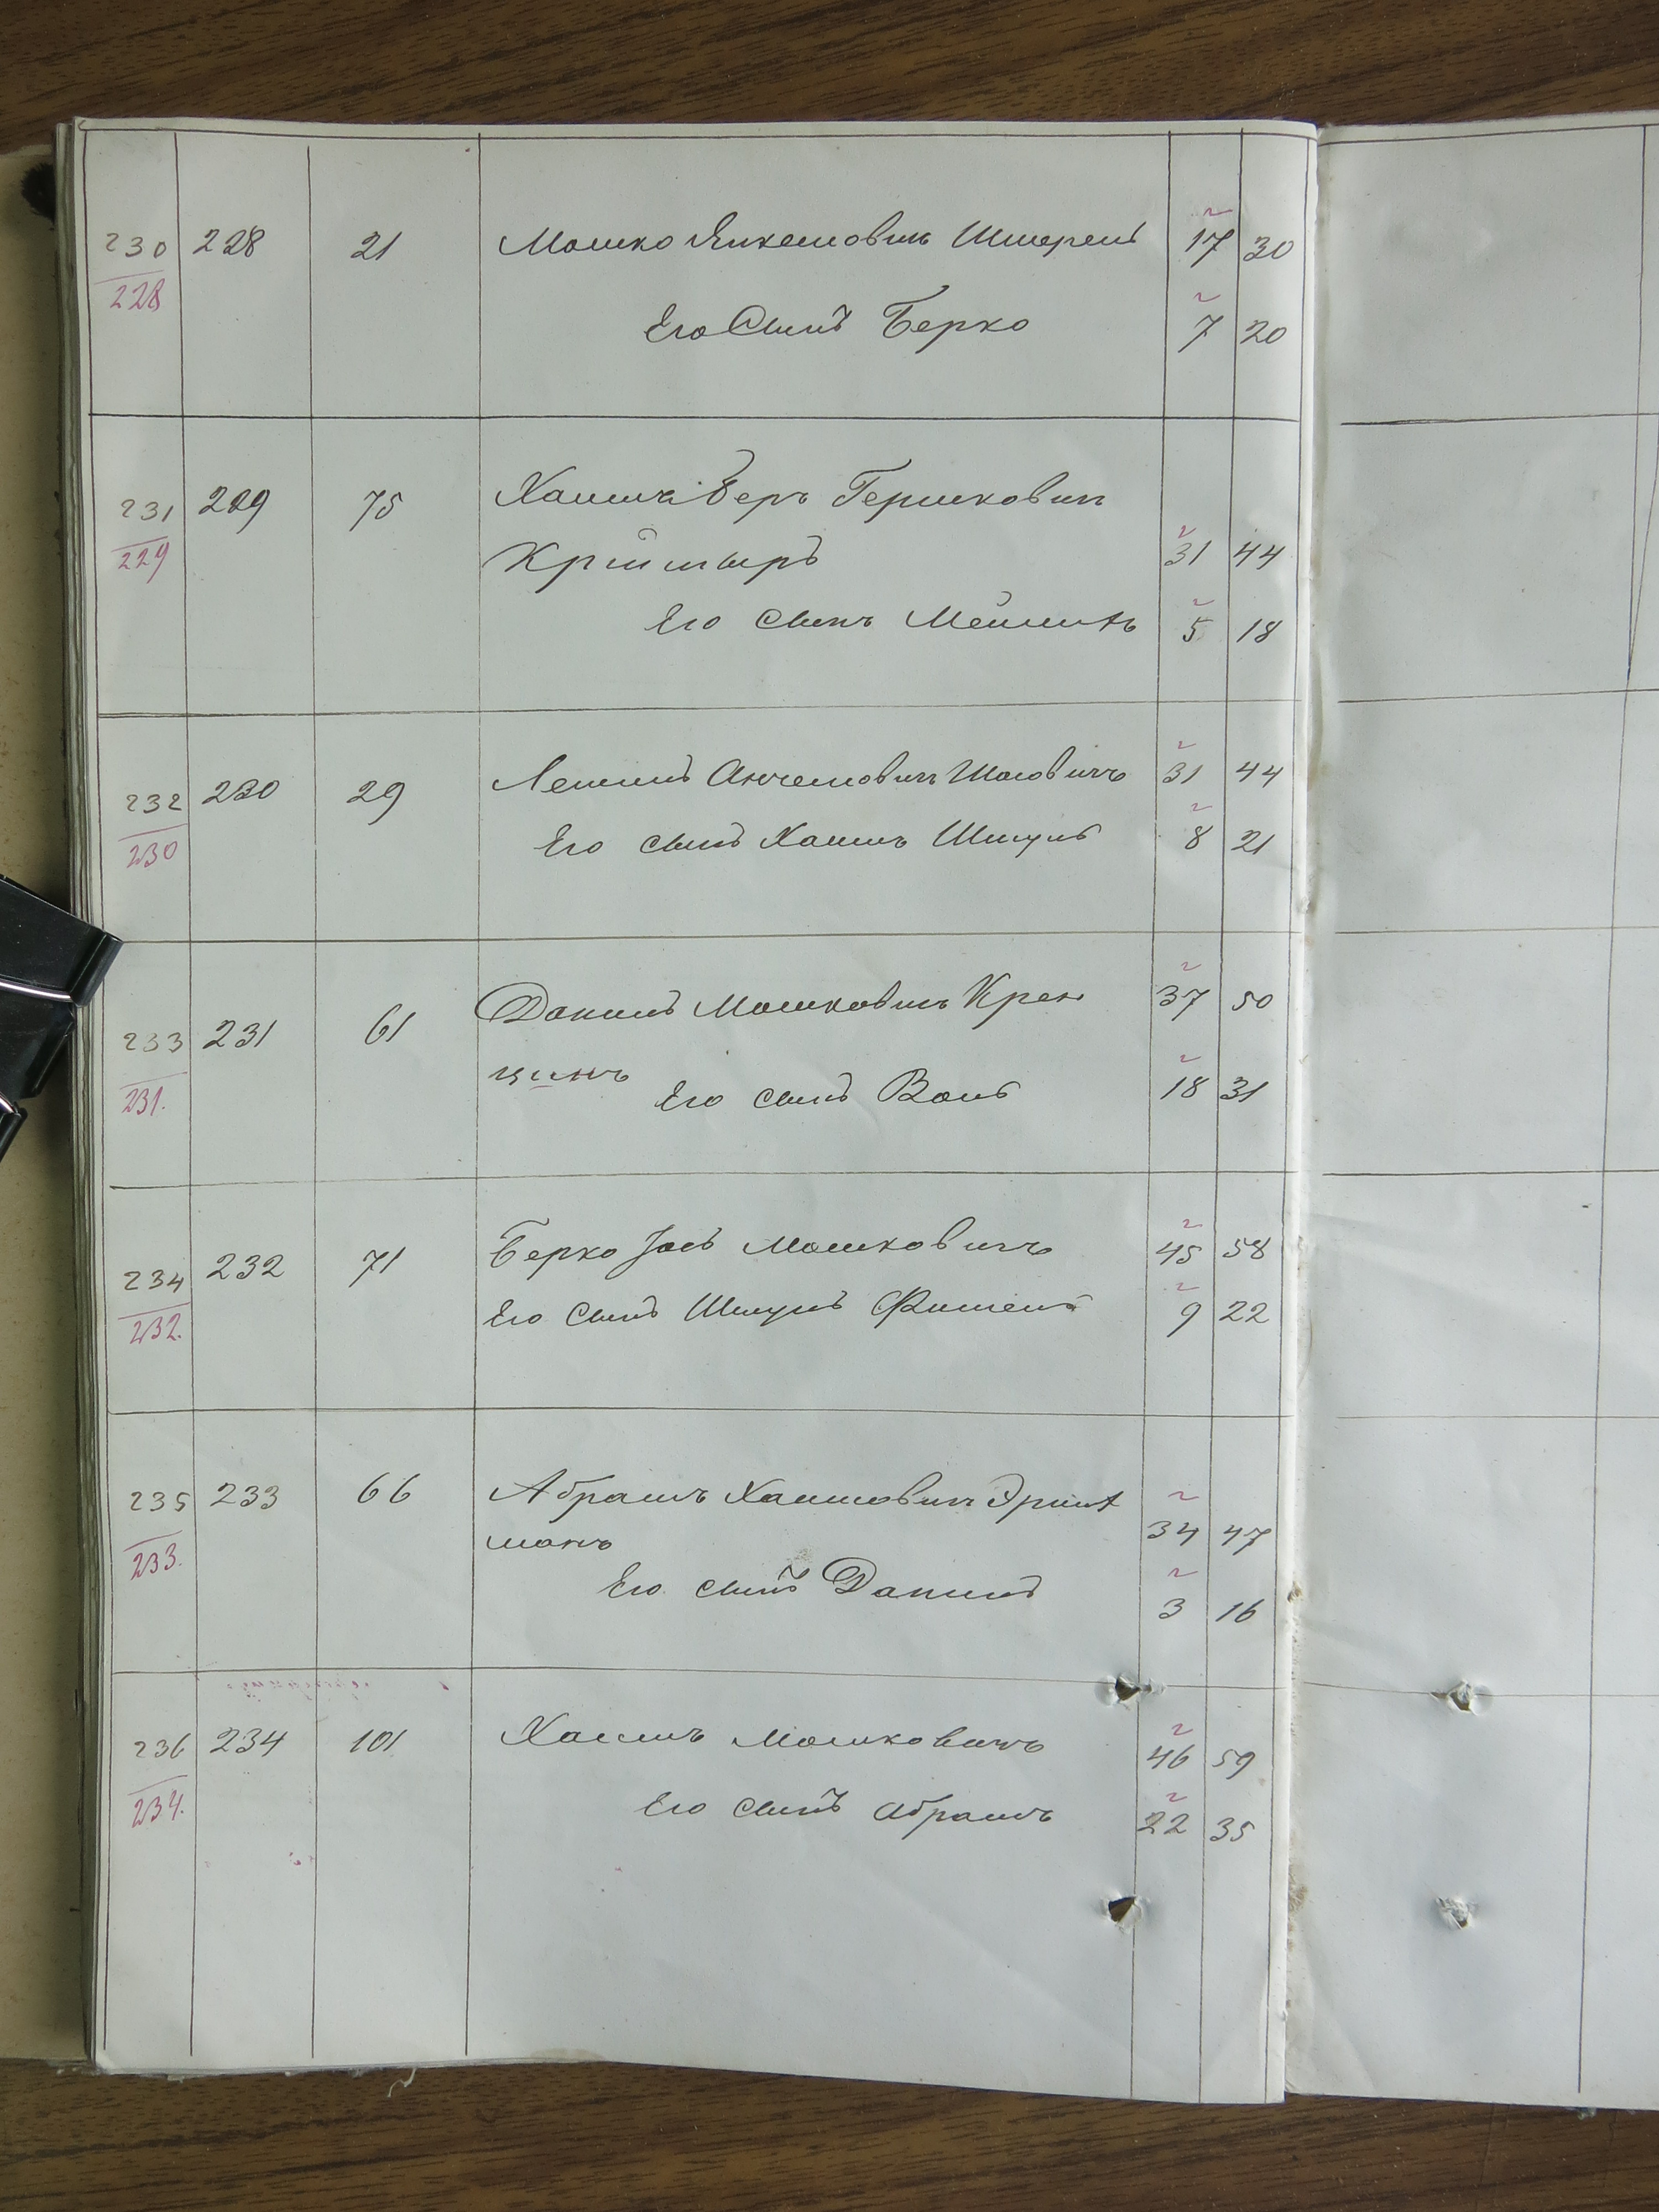 230 228 21 Мошко Янкелович Штерель 17 30
228
Его Сынъ Берко 7 20
231 229 75 Хаимъ Беръ Гершкович
229 31 44
Его сынъ 5 18
232 230 29 31 44
230 Его сынъ Хаимъ Шмуль 8 21
233 231 61 Даниль Мошковичъ Крен 37 50
231. цинъ Его сынъ Вольъ 18 31
234 232 71 Берко Іось Мошковичъ 45 58
232. Его сынъ Шмуль Фишель 9 22
235 233 66 Абрамъ Хаимович
233. манъ 34 47
Его сынъ Даниль 3 16
236 234 101 Хаимъ Мошковичъ 46 59
234. Его сынъ Абрамъ 22 35